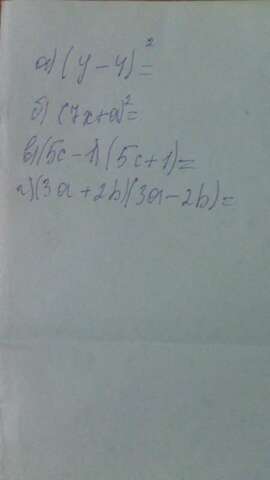 а) (y-4)²=
б) (7x+a)²=
в) (5c-1)(5c+1)=
г) (3a+2b)(3a-2b)=